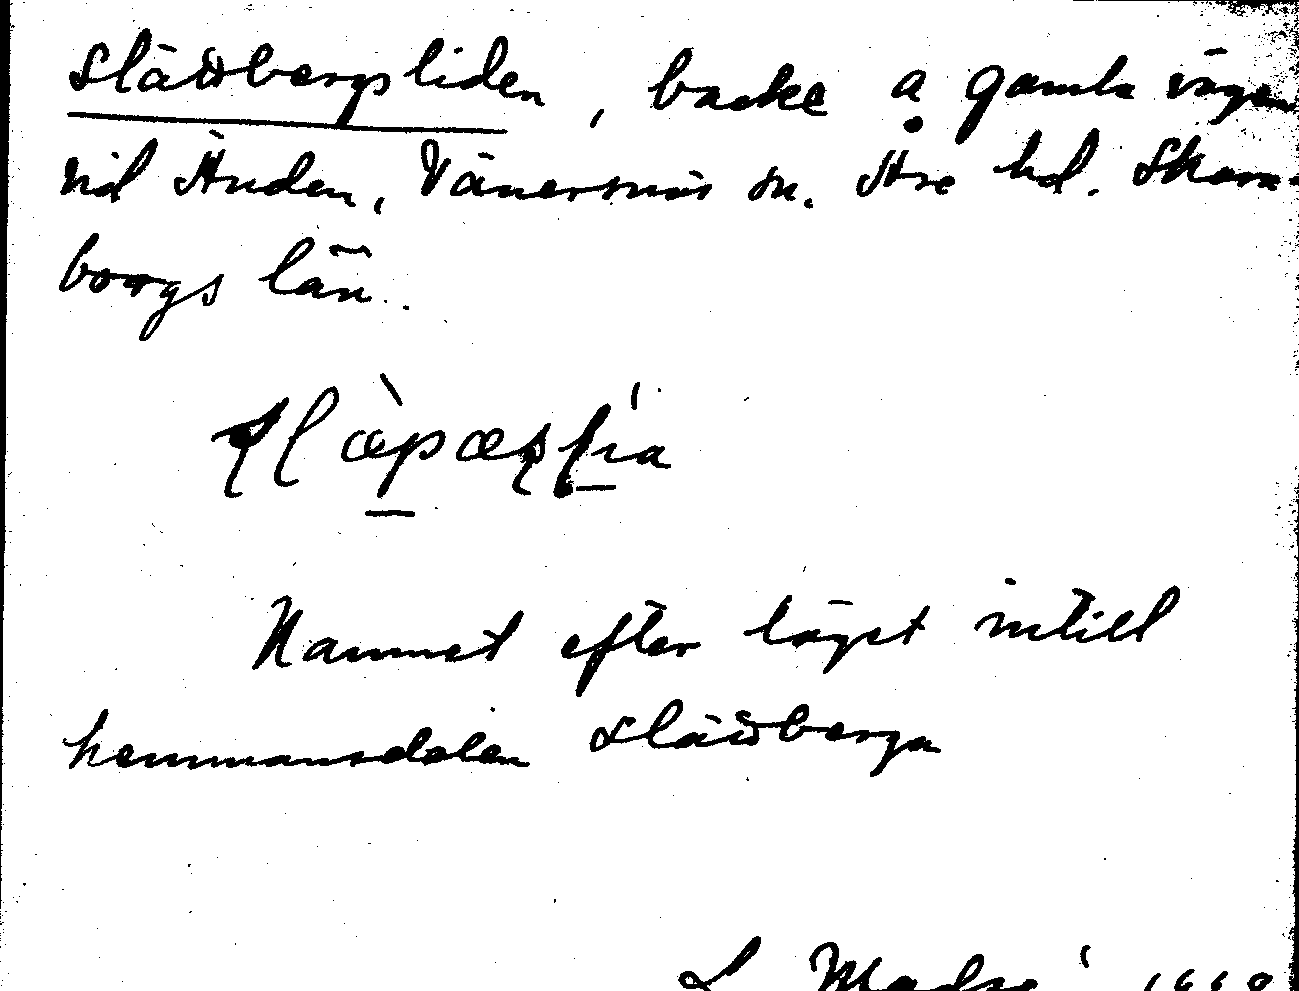 Slädbergsliden, backe å gamla vägen
vid Änden, Vänersnäs sn. Åse hd. Skara-
borgs län.
Namnet efter läget intill
hemmansdelen Slädberga